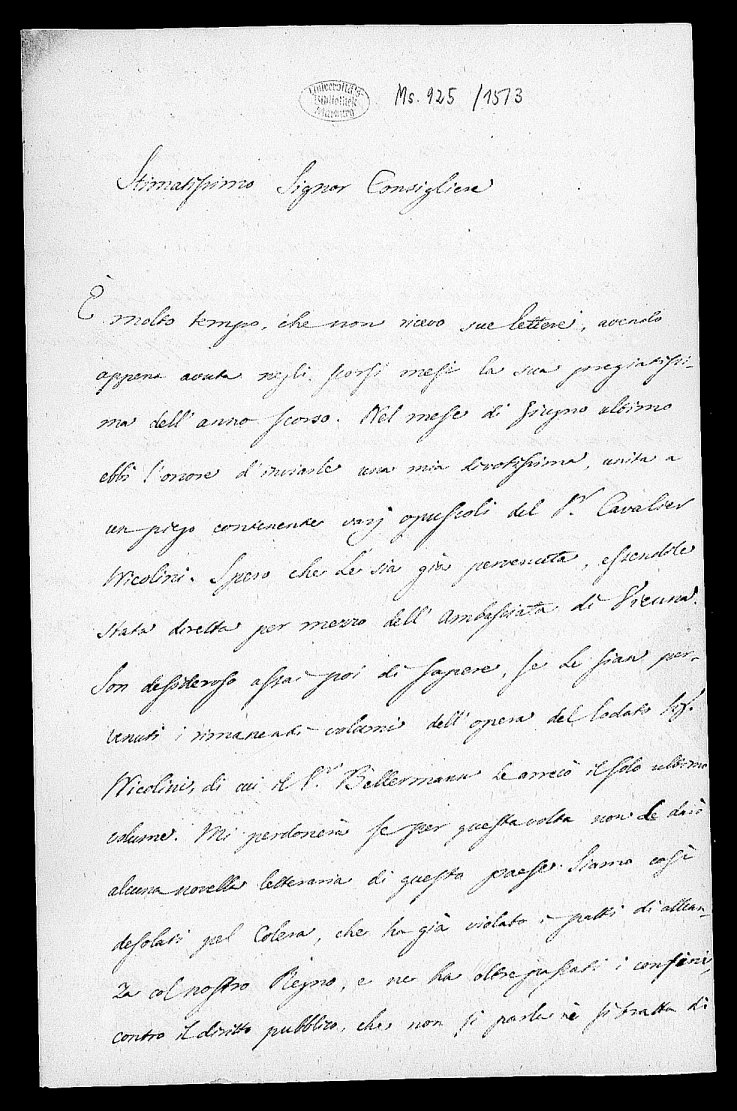 Universitäts-
Bibliothek
Marburg
Ms. 925 /1573
Stimatissimo Signor Consigliere
È molto tempo, che non ricevo sue lettere, avendo
appena avuta negli scorsi mesi la sua pregiatissi-
ma dell'anno scorso. Nel mese di Giugno ultimo
ebbi l'onore d'inviarle una mia devotissima, unita a
un piego contenente varj opuscoli del Sr. Cavalier
Nicolini. Spero che Le sia già pervenuta, essendole
stata diretta per mezzo dell'Ambasciata di Vienna.
Son desideroso assai poi di sapere, se Le sian per-
venuti i rimanenti volumi dell'opera del lodato Sigr.
Nicolini, di cui il Sr. Bellermann Le arrecò il solo ultimo
volume. Mi perdonerà se per questa volta non Le darò
alcuna novella letteraria di questo paese. Siamo così
desolati pel Colera, che ha già violato i patti di allean-
za col nostro Regno, e ne ha oltrepassati i confini,
contro il diritto pubblico, che non si parla nè si tratta di